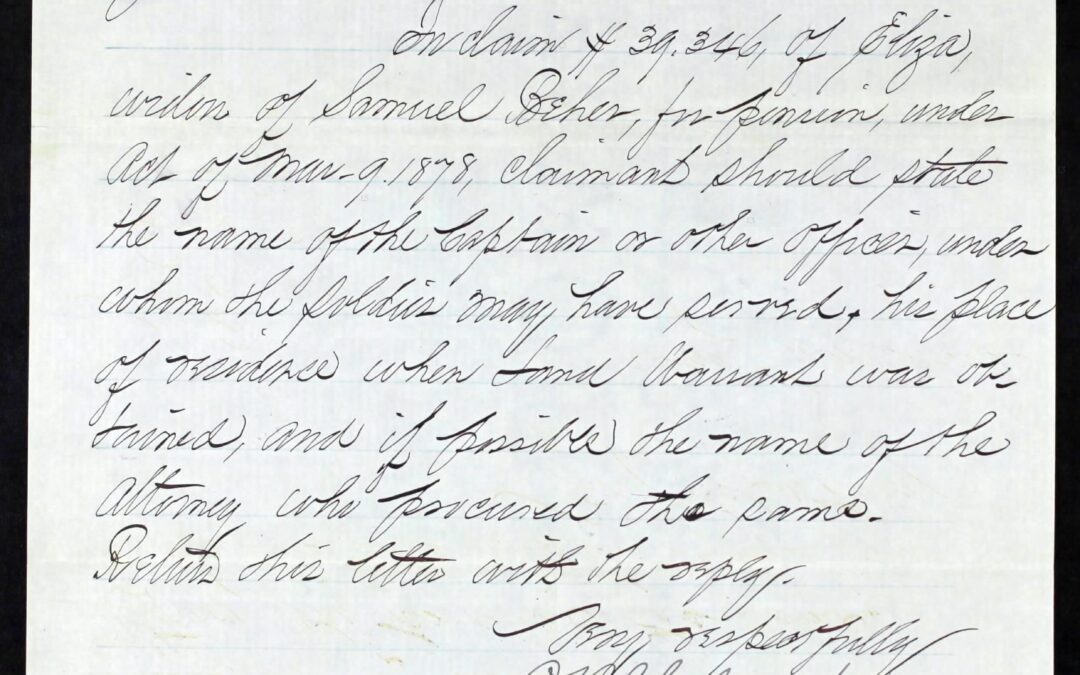 In claim # 39.346, of Eliza,
widow of Samuel Beher, for pension, under
Act of Mar. 9. 1878, claimant should state
the name of the Captain or other officer, under
whom the soldier may have served, his place
of residence when Land Warrant was ob-
tained, and if possible the name of the
Attorney who procured the same.
Return this letter with the reply.
Very respectfully